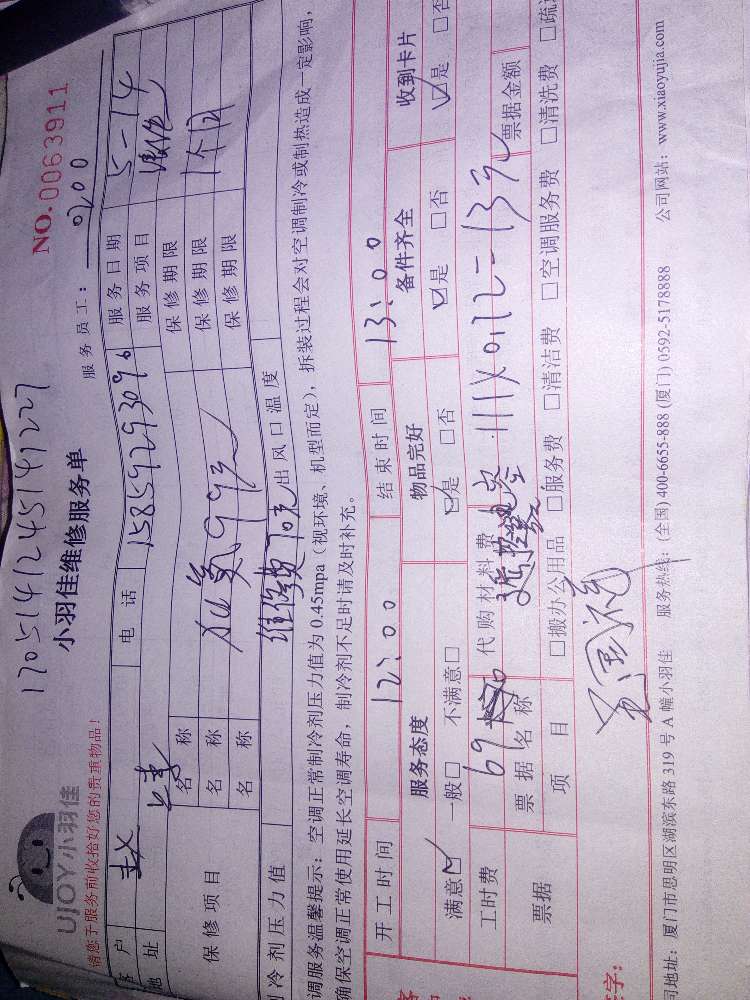 1705141245141227
NO.0063911
UJOY小羽佳
小羽佳维修服务单
服务员工：0200
请您于服务前收拾好您的贵重物品！
客户 赵 电话 15859293096 服务日期 5-14
地址 服务项目
保修项目 名称 保修期限
名称 加氟99元 保修期限 1个月
名称 保修期限
制冷剂压力值 维修费70元 出风口温度
调服务温馨提示：空调正常制冷剂压力值为 0.45mpa（视环境、机型而定），拆装过程会对空调制冷或制热造成一定影响，
确保空调正常使用延长空调寿命，制冷剂不足时请及时补充。
开工时间 12:00 结束时间 13:00
服务态度 物品完好 备件齐全 收到卡片
满意☑ 一般□ 不满意□ ☑是 □否 ☑是 □否 ☑是 □否
工时费 69 代购材料费
票据 票据名称 票据金额
项目 □搬办公用品 □服务费 □清洁费 □空调服务费 □清洗费
字：
司地址：厦门市思明区湖滨东路 319 号 A 幢小羽佳 服务热线：(全国) 400-6655-888 (厦门) 0592-5178888 公司网站：www.xiaoyujia.com